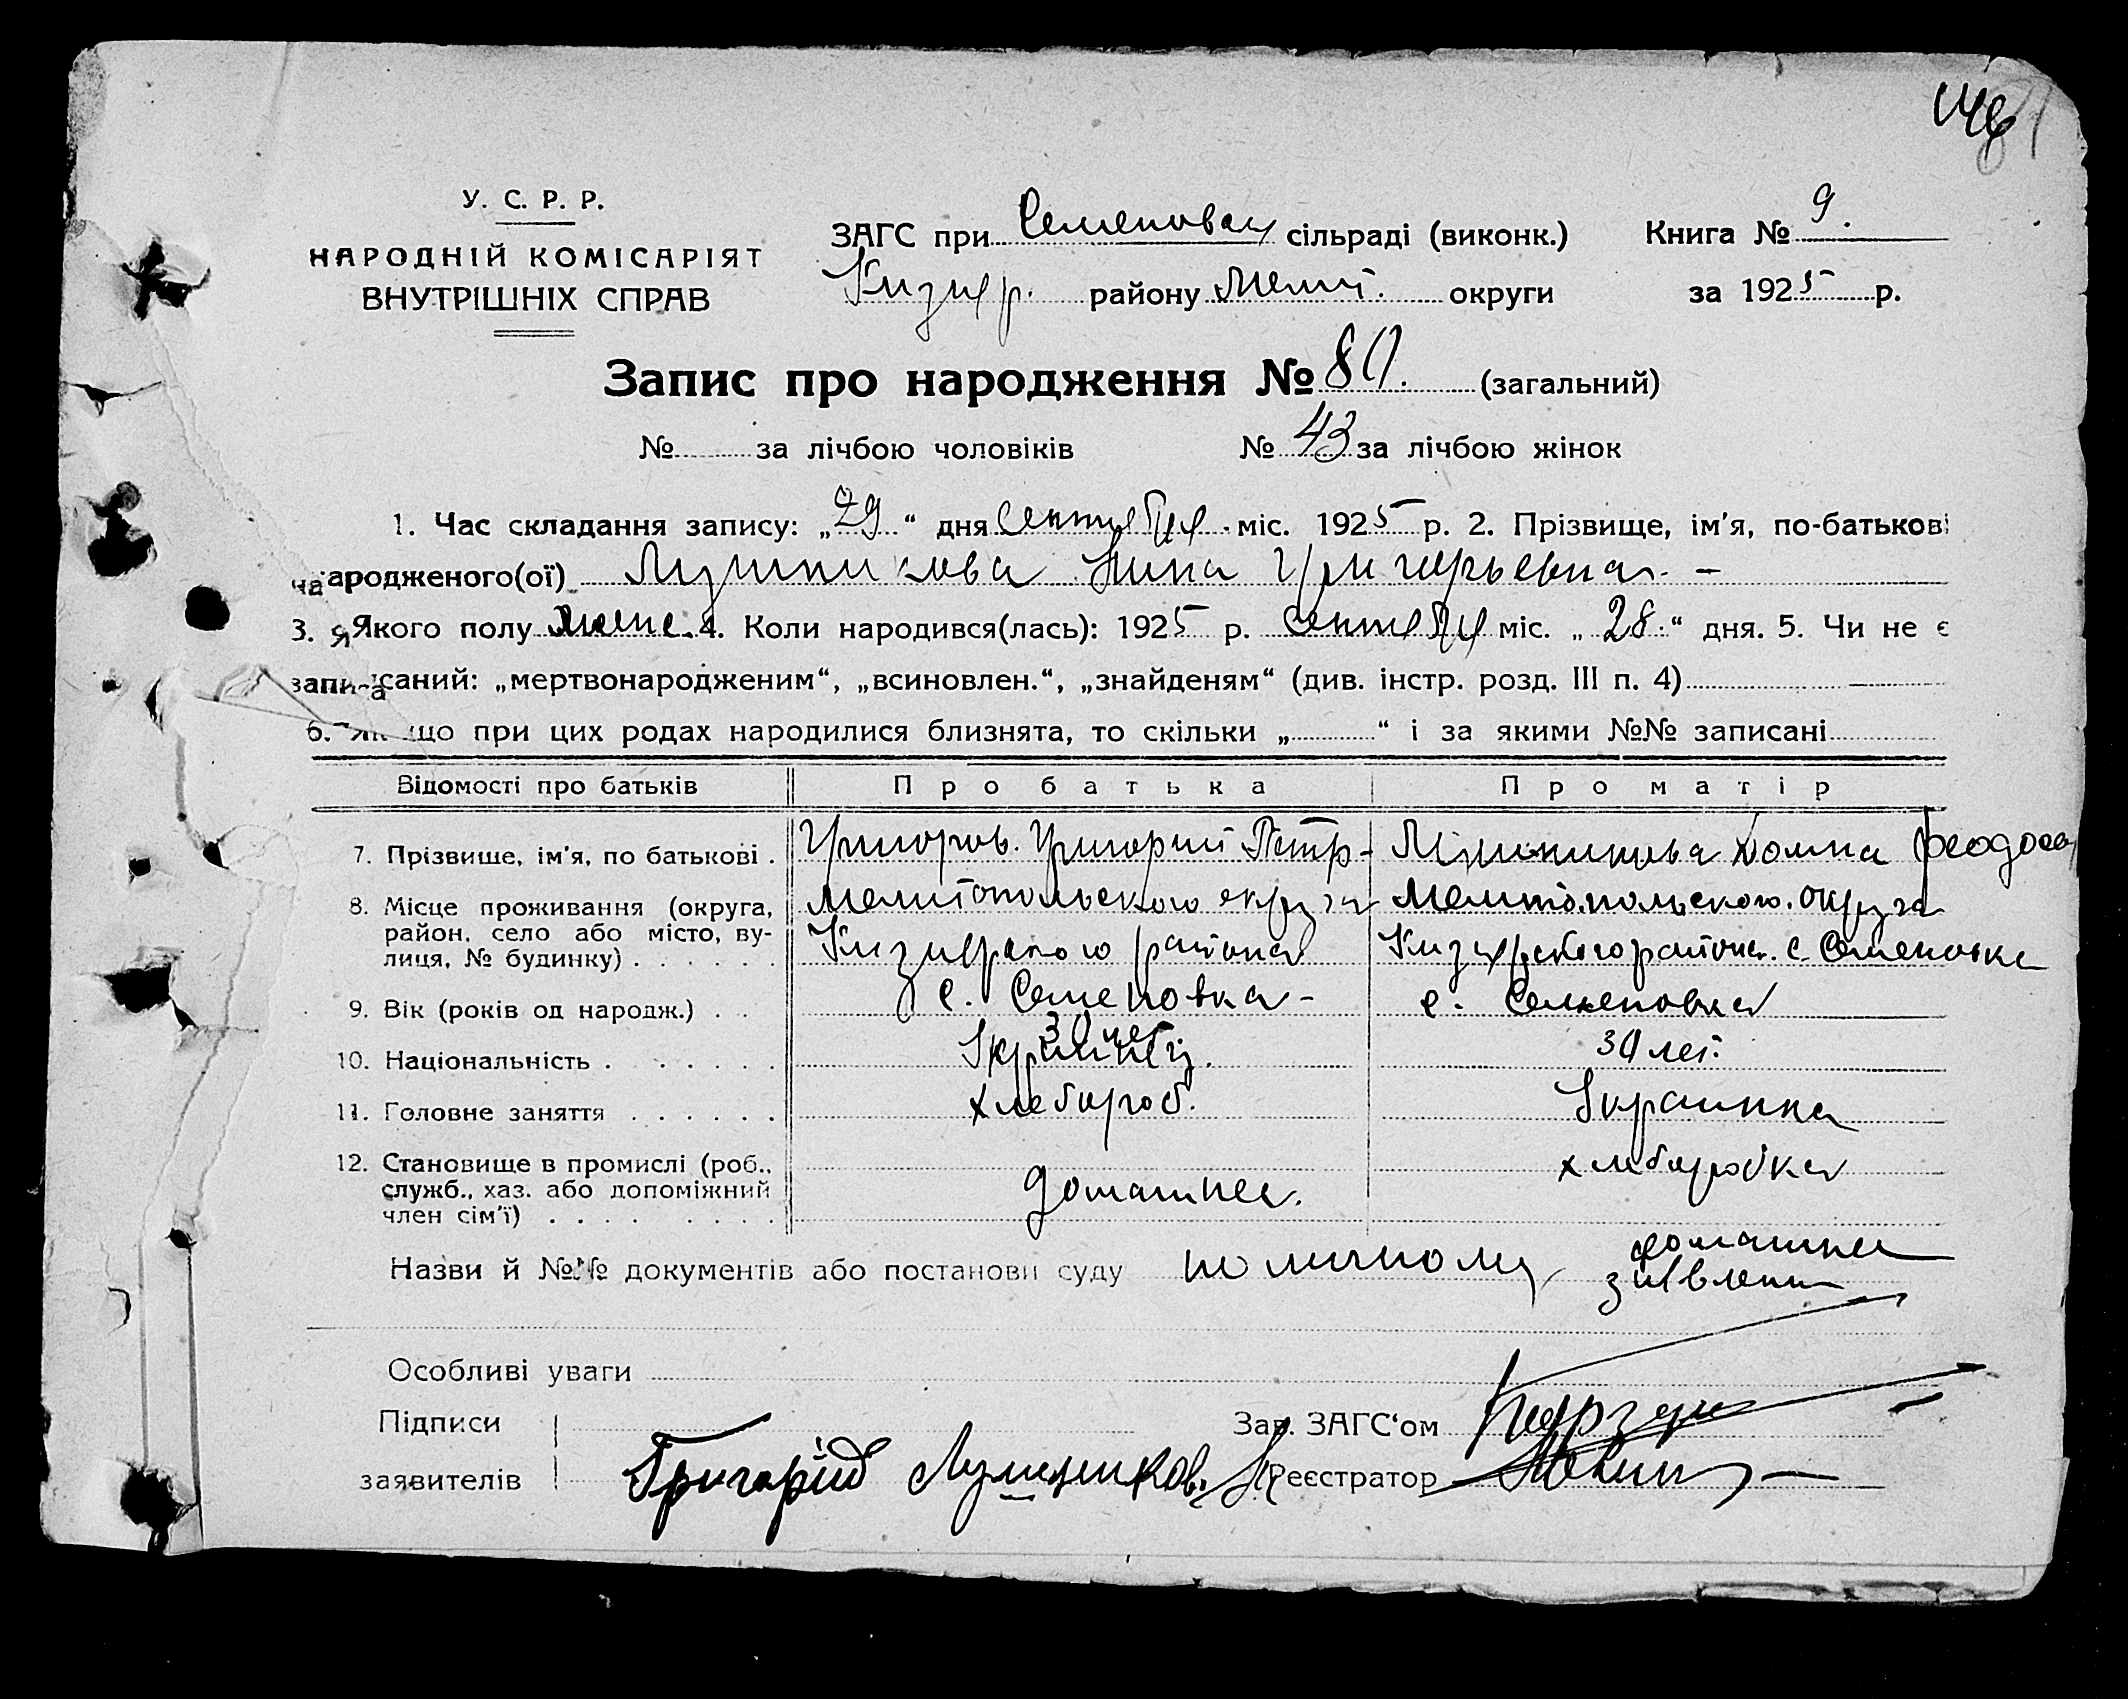 146
У. С. Р. Р.
НАРОДНІЙ КОМІСАРІЯТ
ВНУТРІШНІХ СПРАВ
ЗАГС при Семеновом сільраді (виконк.) Книга № 9.
Кизиер. району Мелит. округи за 1925 р.
Запис про народження № 80. (загальний)
№ за лічбою чоловіків № 43 за лічбою жінок
1. Час складання запису: „29“ дня сентября міс. 1925 р. 2. Прізвище, ім'я, по-батькові
народженого(ої) Лушникова Нина Григорьевна. –
3. Якого полу женс. 4. Коли народився(лась): 1925 р. сентября міс. „28.“ дня. 5. Чи не є
записаний: „мертвонародженим“, „всиновлен.“, „знайденям“ (див. інстр. розд. III п. 4)
6. Якщо при цих родах народилися близнята, то скільки „ “ і за якими №№ записані
Відомості про батьків Про батька Про матір
7. Прізвище, ім'я, по батькові . Григоров. Григорий Петр- Лушникова Домна Феодос
8. Місце проживання (округа, Мелитопольского округа Мелитопольского округа
район, село або місто, ву-
лиця, № будинку) . . . . . . Кизиерского района Кизиерского района. с. Семеновка
9. Вік (років од народж.) . . с. Семеновка - с. Семеновка
30 лет 30 лет.
10. Національність . . . . . . Украинец.
11. Головне заняття . . . . . . хлебороб. Украинка
12. Становище в промислі (роб., хлеборобка
служб., хаз. або допоміжний домашнее.
член сім'ї) . . . . . . . .
домашнее
Назви й №№ документів або постанови суду по личному заявлению
Особливі уваги
Підписи Зав. ЗАГС‘ом
заявителів Григорій Лушников. Реєстратор